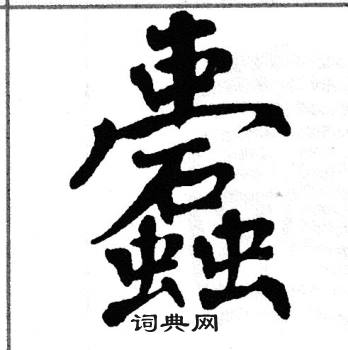 蠹
词典网